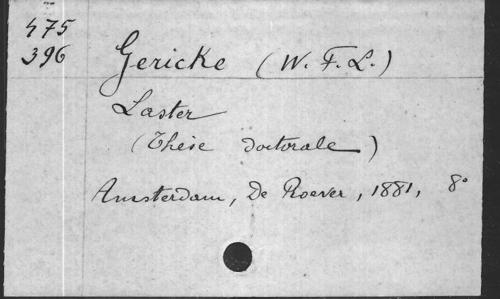 475
396
Gericke (W. F. L.)
Laster
(Thèse doctorale)
Amsterdam, De Roever, 1881, 8°